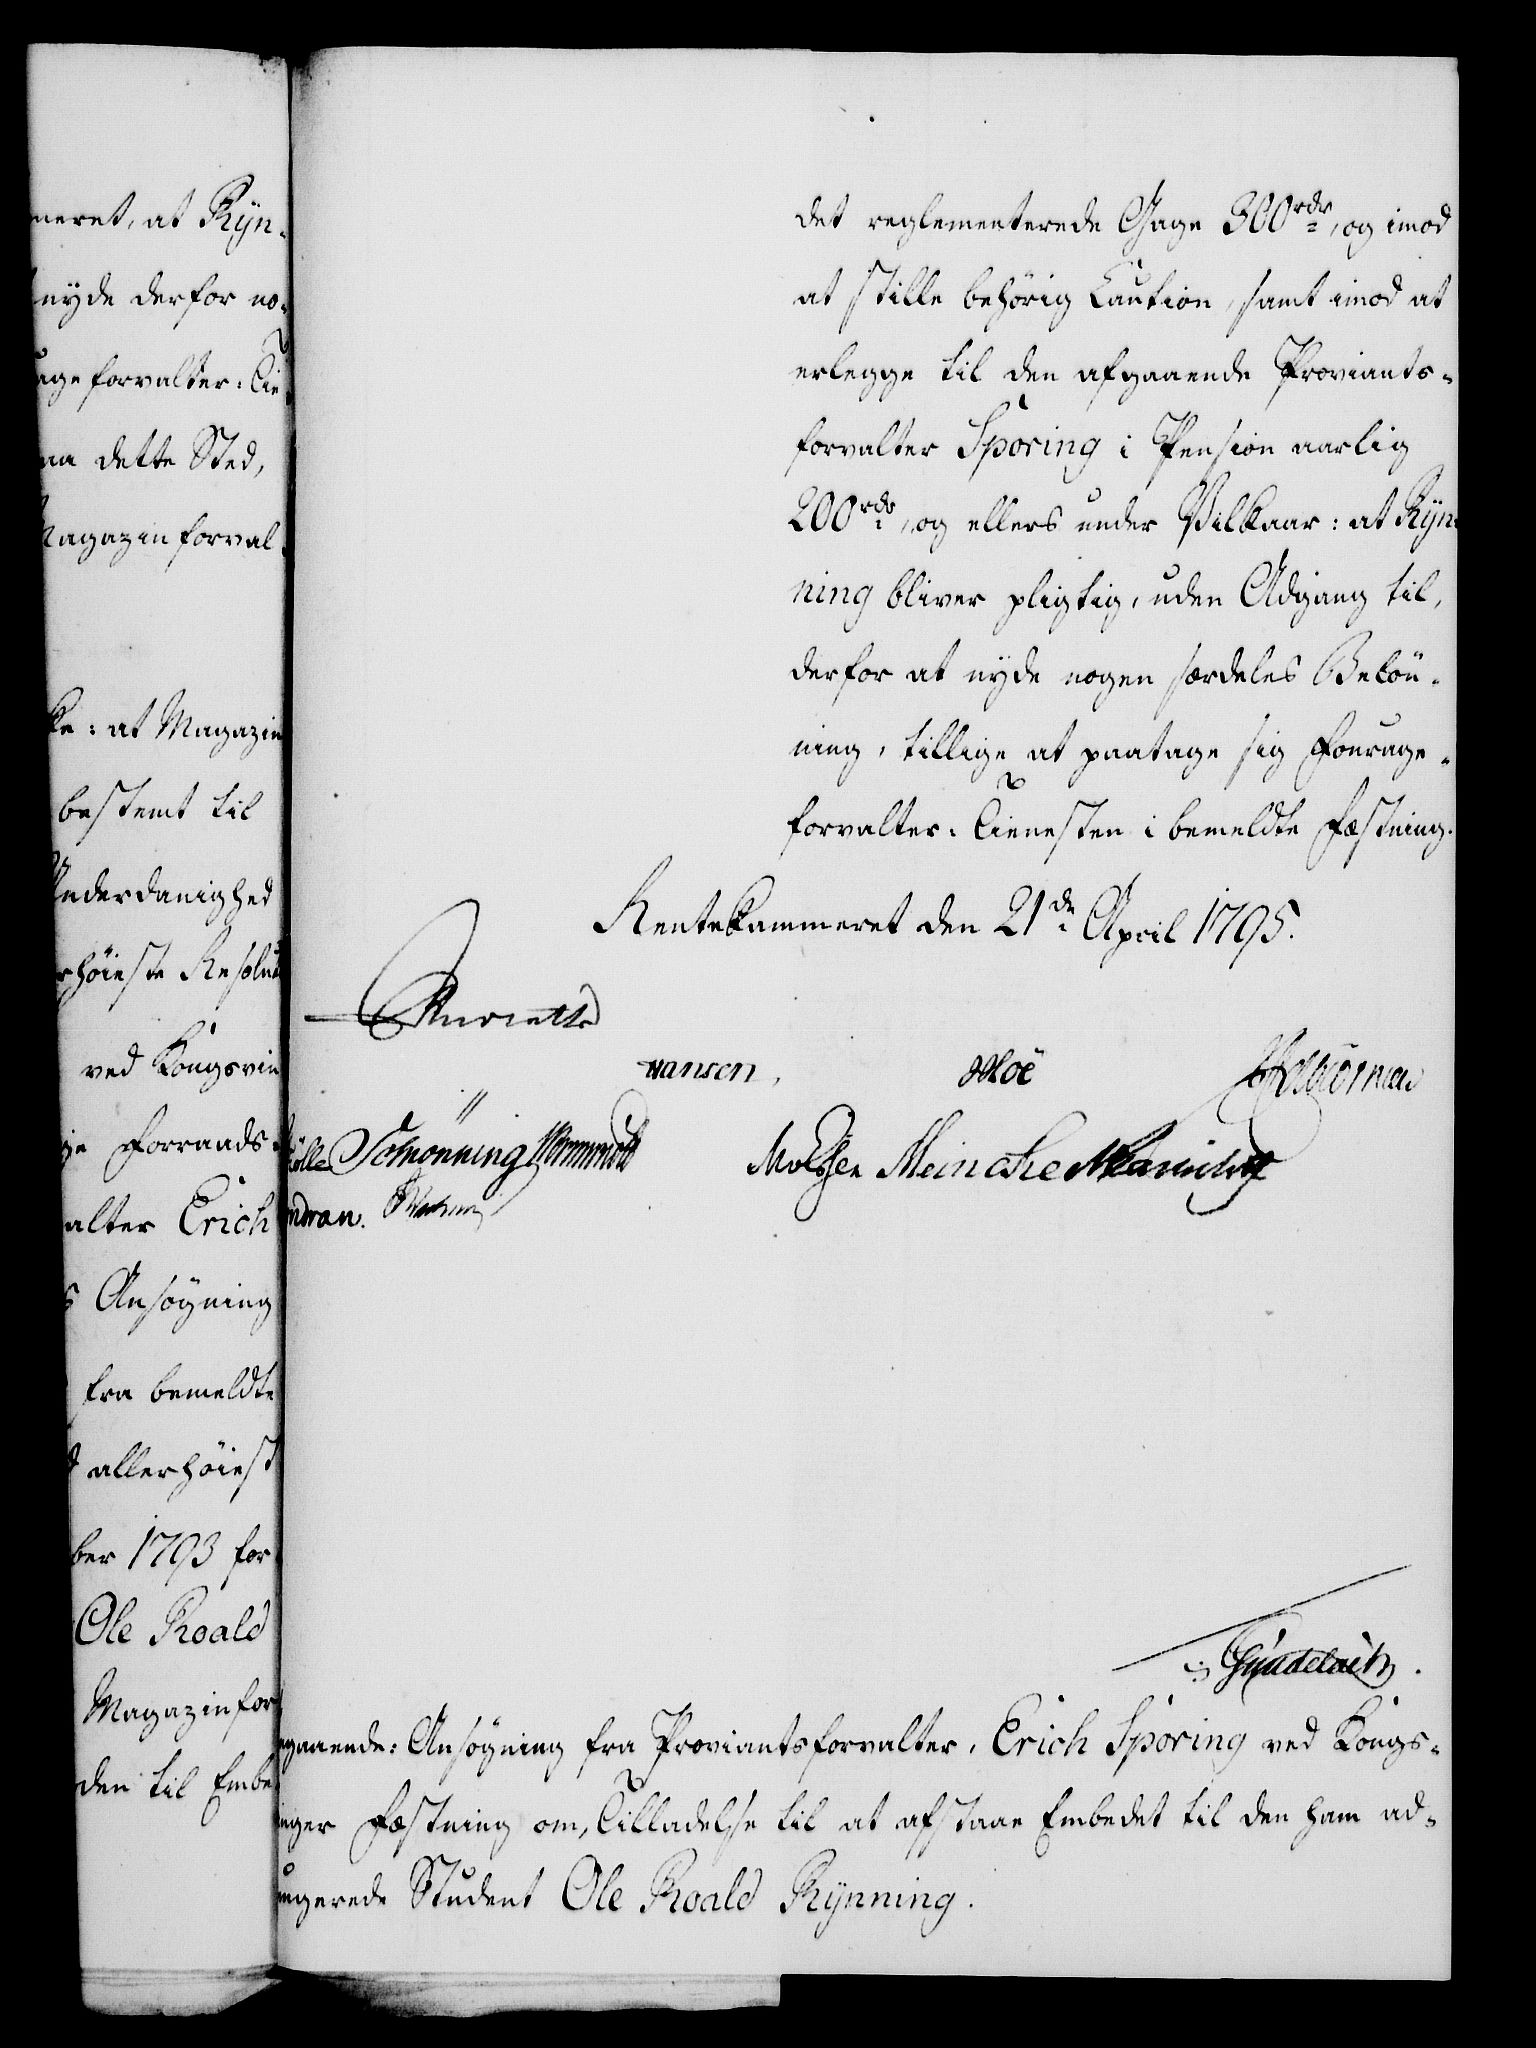 meret, at Rÿn-
nyde derfor no-
age forvalter-Tie-
aa dette Sted,
Magazinforval-
ke: at Magazin
bestemt til
Underdanighed
rhöieste Resolut
ved Kongsvin
ge Forraads-
alter Erich
s Ansögning
fra bemeldte
allerhöiest
ber 1793 for
Ole Roald
Magazinfor
den til Embe
det reglementerede Gage 300 rdr, og imod
at stille behörig Caution, samt imod at
erlegge til den afgaaende Proviants-
forvalter Sporing i Pension aarlig
200 rdr, og ellers under Vilkaar: at Rÿn-
ning bliver pligtig, uden Adgang til,
derfor at nyde nogen særdeles Belön-
ning, tillige at paatage sig Fourage-
forvalter-Tienesten i bemeldte Fæstning.
Rentekammeret den 21de April 1795.
Hansen.
Moë
Schönning Wormskiold
Molzen Meincke
mdran.
Gundelach.
gaaende: Ansögning fra Proviantsforvalter, Erich Sporing ved Kongs-
inger Fæstning om, Tilladelse til at afstaae Embedet til den ham ad-
ungerede Student Ole Roald Rÿnning.